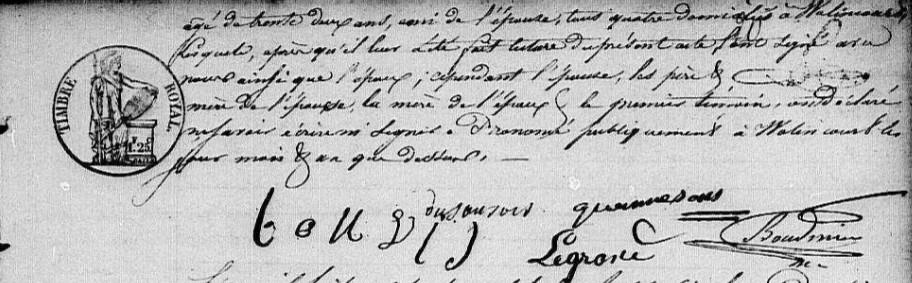 agé de trente deux ans, ami de l'épouse, tous quatre domiciliés à Walincourt,
lesquels, après qu'il leur a été fait lecture du présent acte l'ont signé avec
nous ainsi que l'époux; cependant l'épouse, les père &
mère de l'épouse, la mère de l'époux & le premier témoin, ont déclaré
ne savoir écrire ni signer. Prononcé publiquement à Walincourt les
jour mois & an que dessus.
TIMBRE ROYAL
1F. 25C
dusausois quennesons
Legrand Boudinier